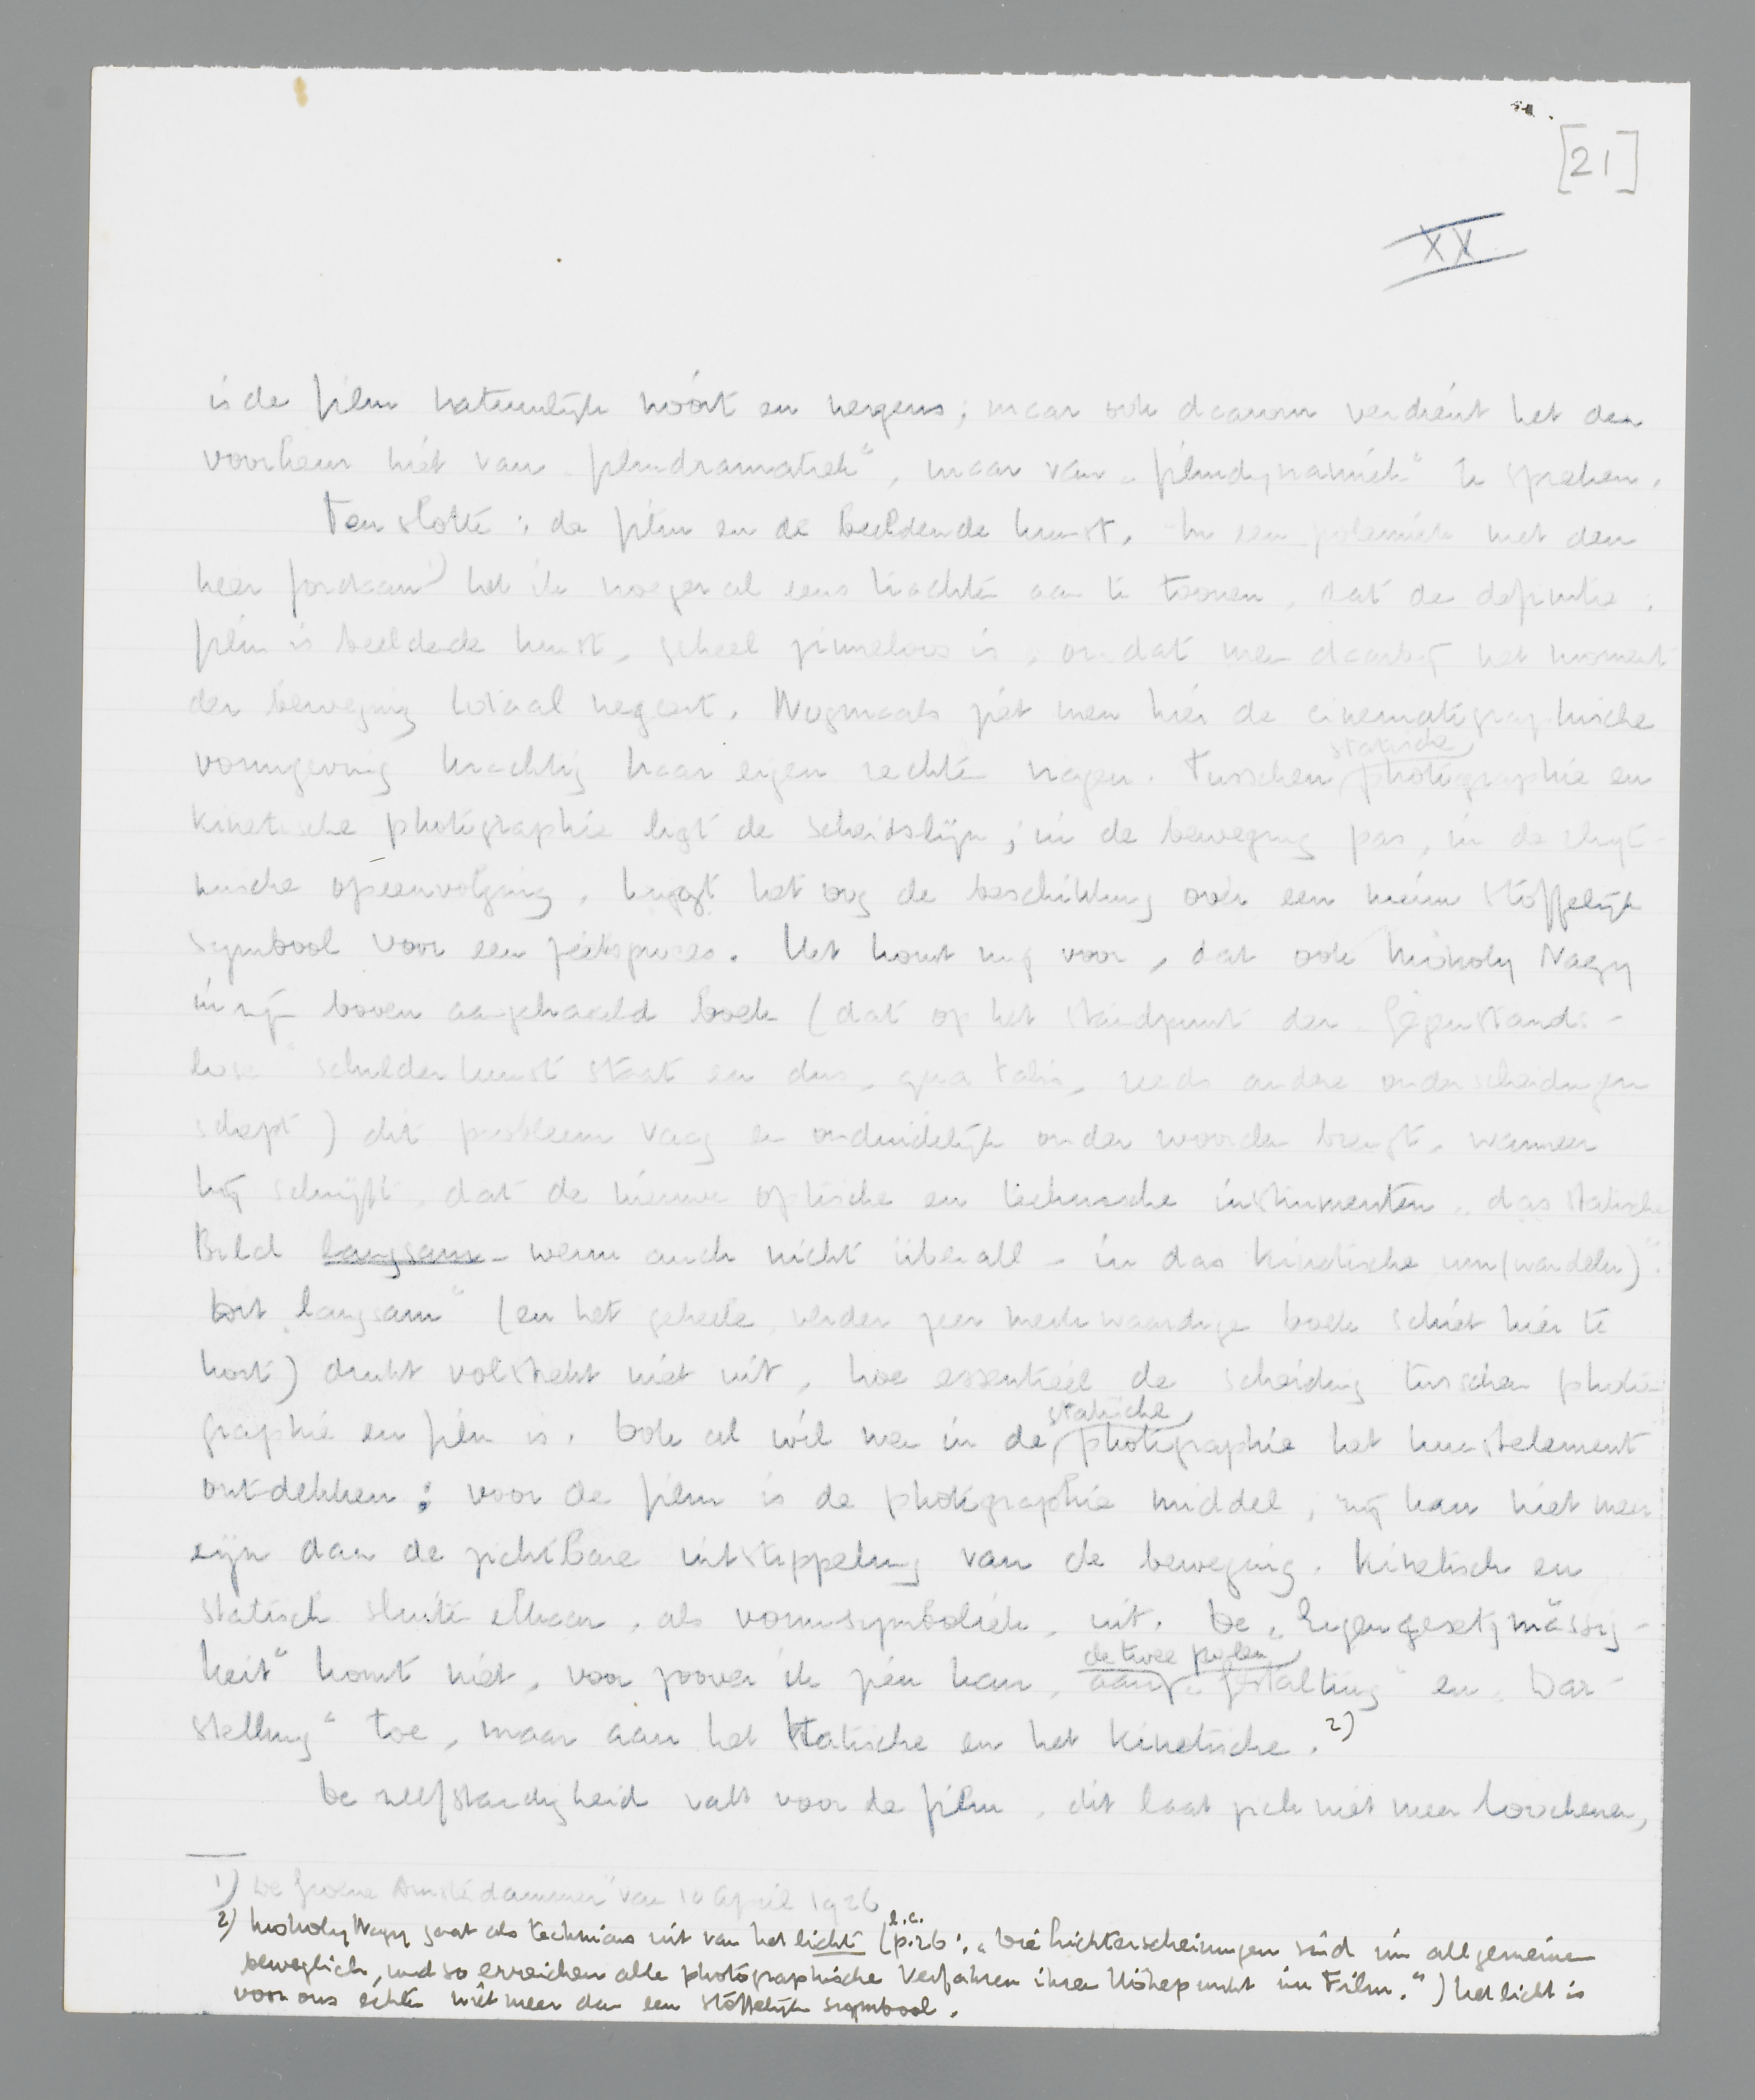 [21]
XX
is de film natuurlijk nooit en nergens; maar ook daarom verdient het den
voorkeur niet van „filmdramatiek“, maar van „filmdynamiek“ te spreken.
Ten slotte: de film en de beeldende kunst. In een polemiek met den
heer Jordaan 1) heb ik vroeger al eens trachten aan te toonen, dat de definitie:
film is beeldende kunst, geheel zinneloos is, omdat men daarbij het moment
der beweging totaal negeert. Nogmaals ziet men hier de cinematographische
vormgeving krachtig haar eigen rechten vragen. Tusschen statische photographie en
kinetische photographie ligt de scheidslijn; in de beweging pas, in de rhyt-
mische opeenvolging, krijgt het oog de beschikking over een nieuw stoffelijk
symbool voor een zielsproces. Het komt mij voor, dat ook Moholy Nagy
in zijn boven aangehaald boek (dat op het standpunt der „Gegenstands-
lose“ schilderkunst staat en dus, qua talis, reeds andere onderscheidingen
schept) dit probleem vaag en onduidelijk onder woorden brengt, wanneer
hij schrijft, dat de nieuwe optische en technische instrumenten „das statische
Bild langsam – wenn auch nicht überall – in das kinetische um(wandeln)“.
Dit „langsam“ (en het geheele, verder zeer merkwaardige boek schiet hier te
kort) drukt volstrekt niet uit, hoe essentieel de scheiding tusschen photo-
graphie en film is. Ook al wil men in de statische photographie het kunstelement
ontdekken: voor de film is de photographie middel, zij kan niet meer
zijn dan de zichtbare uitstippeling van de beweging. Kinetisch en
statisch sluiten elkaar, als vormsymboliek, uit. De „Eigengesetzmässig-
keit“ komt niet, voor zoover ik zien kan, aan de twee polen „Gestaltung“ en „Dar-
stellung“ toe, maar aan het statische en het kinetische. 2)
De zelfstandigheid valt voor de film, dit laat zich niet meer loochenen,
1) De Groene Amsterdammer“ van 10 April 1926
2) Moholy Nagy gaat als technicus uit van het licht (l.c. p. 26: „Die Lichterscheinungen sind im allgemeinen
beweglich, und so erreichen alle photographische Verfahren ihren Höhepunkt im Film.“) het licht is
voor ons echter niet meer dan een stoffelijk symbool.